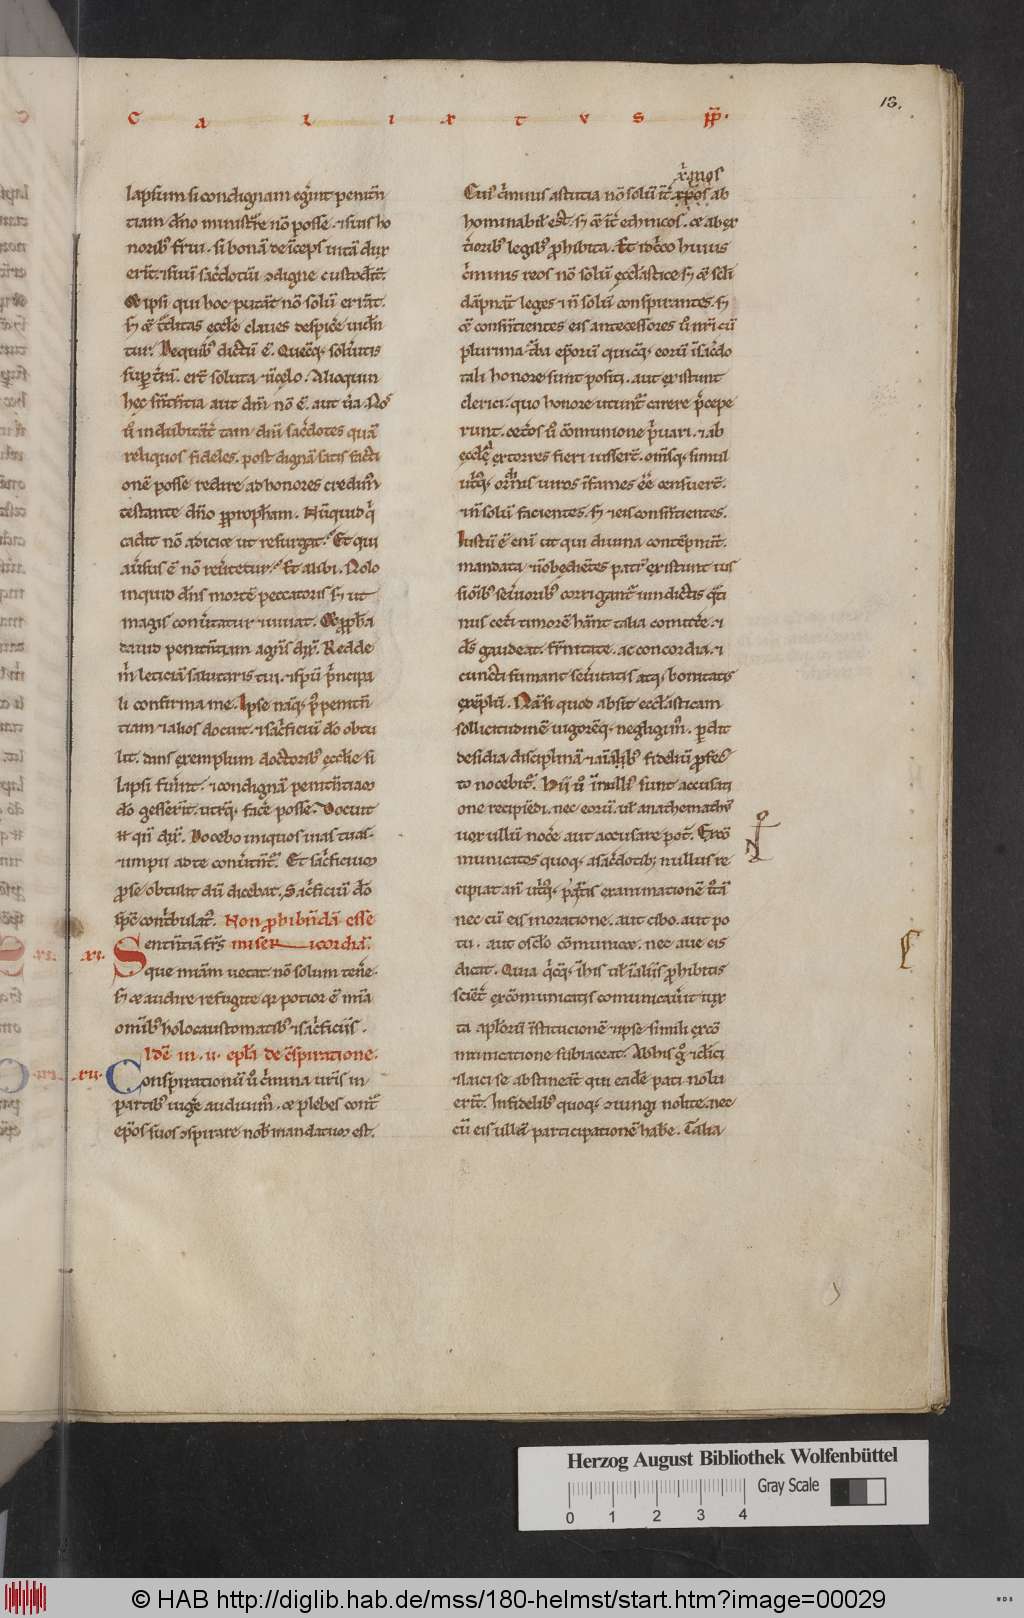 C a l i x t v s pp̄.
13.
lapsum si condignam eḡint penitn̄
tiam dn̄o ministr̄e nō posse. ⁊ suis ho
noribꝰ frui. si bonā deīceps uitā dux
erīt. ⁊ suū sac̄dotiū ꝯdigne custodīt.
Qd̄ ipsi qui hoc putāt nō solū errāt.
sꝫ & t̄ditas eccl̄e claues despic̄e uidn̄
tur. De quibꝰ dictū ē. Quecūqꝫ solu̇itis
suꝑ t̄rā. er̄t soluta ⁊ ī celo. Alioquin
hec sn̄tn̄tia aut dn̄i nō ē. aut ūa. Nos
ū indubitāt̄ tam dn̄i sac̄dotes quā
reliquos fideles. post dignā satisfacti
onē posse redire ad honores credimꝰ
testante dn̄o ꝑ prophām. Nūquid q̇
cadit nō adiciet ut resurgat. Et qui
au̇sus ē nō reu̇tetur. Et alibi. Nolo
inquid dn̄s mortē peccatoris sꝫ ut
magis conu̇tatur ⁊ uiuat. Et ꝓpha
dauid penitn̄tiam agn̄s dix̄. Redde
m̄ leticiā salutaris tui. ⁊ spū p̄ncipa
li confirma me. Ipse nāqꝫ p̄ penitn̄
tiam ⁊ alios docuit. ⁊ sac̄ficiū dō obtu
lit. dans exemplum doctoribꝰ eccl̄ie si
lapsi fuīnt. ⁊ condignā penitn̄tiam
dō gesserīt. utrūqꝫ fac̄e posse. Docuit
n̄ qn̄ dix̄. Docebo iniquos uias tuas.
⁊ impii ad te conu̇tn̄t̄. Et sac̄ficium
ꝓ se obtulit dū dicebat. Sac̄ficiū dō
sp̄c contribulatꝰ. Non ꝓhibn̄dā esse
xi. Sentn̄tiā frs̄ misericordiā.
que miām uetat nō solum tene̅.
sꝫ & audire refugite qꝛ potior ē mīa
omībꝰ holocaustomatibꝰ ⁊ sac̄ficiis.
Idē in .ii. epl̄a de cōspiratione.
xii. Conspirationū ū c̄mina ur̄is in
partibꝰ uige̅ audiuimꝰ. & plebes cont̄
ep̄os suos ꝯspirare nob̄ mandatum est.
x̄inos
Cuiꝰ c̄minis astutia nō solū int̄ xp̄os ab
hominabilꝭ est. sꝫ & int̄ ethnicos. & ab ex
t̄ioribꝰ legibꝰ ꝓhibita. Et id̄co huius
c̄minis reos nō solū eccl̄astice sꝫ & sc̄li
dāpnāt leges ⁊ n̄ solū conspirantes. sꝫ
& consn̄tientes eis antecessores ū nr̄i cū
plurima t̄ba ep̄orū quicūqꝫ eorū ī sac̄do
tali honore sunt positi. aut existunt
clerici. quo honore utunt̄ carere p̄cepe
runt. cet̄os ū cōmunione p̄uari. ⁊ ab
eccl̄a extorres fieri iusser̄t. om̄sqꝫ simul
utriꝰqꝫ ordinis uiros īfames ēe̅ censuer̄t.
⁊ n̄ solū facientes. sꝫ ⁊ eis consn̄tientes.
Iustū ē enī ut qui diuina contēpnūt.
mandata ⁊ īobedientes patrꝰ existunt ius
siōībꝰ seu̇ioribꝰ corrigant̄ uindictis qt̄i
nus cet̄i timorē hāant talia comittꝫe. ⁊
oēs gaudeāt fr̄nitate. ac concordia. ⁊
cuncti sumant seu̇itatis atqꝫ bonitatis
exēplū. Nā si quod absit eccl̄asticam
sollicitudinē uigorēqꝫ negligimꝰ. ꝑdit
desidia disciplinā ⁊ aīabꝰ fideliū ꝓfec
to nocebit̄. Hii ū ī nullīꝰ sunt accusati
one recipiēdi. nec eorū. ul̄ anathematiꝫ
uox ullū noc̄e aut accusare pot̄. Exco
municatos quoqꝫ a sac̄dotibꝫ nullus re
cipiat an̄ utriꝰqꝫ ꝑtis examinationē iustā
nec cū eis in oratione. aut cibo. aut po
tu. aut osclo cōmunicet. nec aue eis
dicat. Quia q̇cūqꝫ ī his ul̄ ī aliis ꝓhibitis
sciēt̄ excōmunicatis comunicau̇it iux
ta aplor̄ū īstitucionē ⁊ ipse simili exco
municatione subiaceat. Ab his g̊ ⁊ cl̄ici
⁊ laici se abstineāt qui eādē pati nolu
erīt. Infidelibꝰ quoqꝫ ꝯiungi nolite. nec
cū eis ullā participationē habe̅. Talia
Herzog August Bibliothek Wolfenbüttel
Gray Scale
0 1 2 3 4
© HAB http://diglib.hab.de/mss/180-helmst/start.htm?image=00029